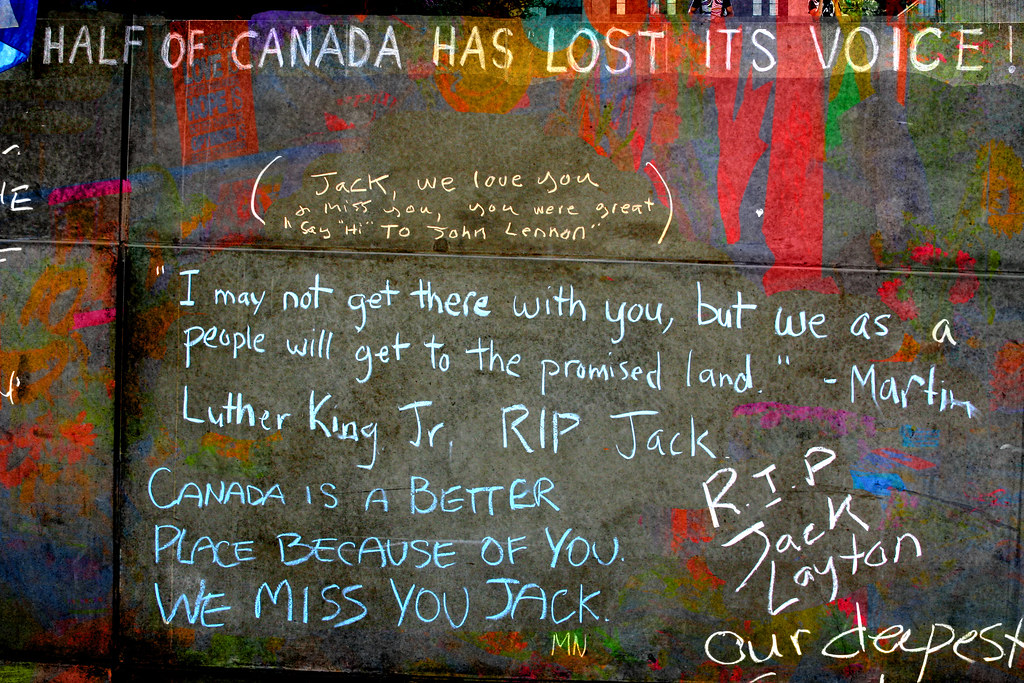 HALF OF CANADA HAS LOST ITS VOICE!
(JACK, we love you
& miss you, you were great
"Say "Hi" To John Lennon")
"I may not get there with you, but we as a
people will get to the promised land." - Martin
Luther King Jr. RIP Jack.
CANADA IS A BETTER
PLACE BECAUSE OF YOU.
WE MISS YOU JACK.
MN
R.I.P
Jack
Layton
our deepest